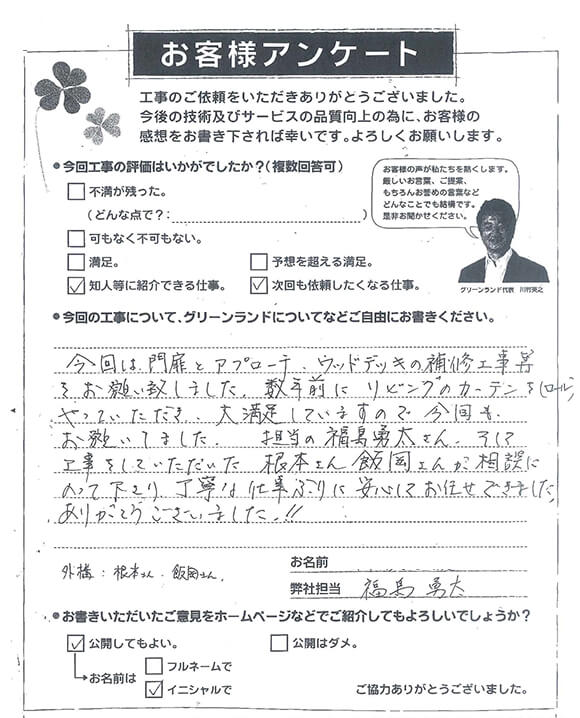 お客様アンケート
工事のご依頼をいただきありがとうございました。
今後の技術及びサービスの品質向上の為に、お客様の
感想をお書き下されば幸いです。よろしくお願いします。
●今回工事の評価はいかがでしたか？（複数回答可）
不満が残った。
（どんな点で？：　）
可もなく不可もない。
満足。
予想を超える満足。
知人等に紹介できる仕事。
次回も依頼したくなる仕事。
お客様の声が私たちを熱くします。
厳しいお言葉、ご提案、
もちろんお誉めの言葉など
どんなことでも結構です。
是非お聞かせください。
グリーンランド代表　川村英之
●今回の工事について、グリーンランドについてなどご自由にお書きください。
今回は門扉とアプローチ、ウッドデッキの補修工事等
をお願い致しました。数年前にリビングのカーテンを(ロール)
やっていただき、大満足していますので今回も
お願いしました。担当の福島勇太さん、そして
工事をしていただいた根本さん飯岡さんが相談に
のって下さり丁寧な仕事ぶりに安心してお任せできました。
ありがとうございました。!!
外構：根本さん・飯岡さん
お名前
弊社担当　福島 勇太
●お書きいただいたご意見をホームページなどでご紹介してもよろしいでしょうか？
公開してもよい。
公開はダメ。
お名前は
フルネームで
イニシャルで
ご協力ありがとうございました。